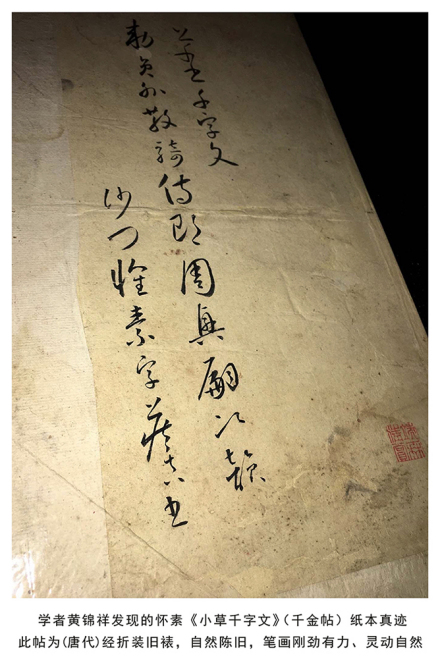 千字文
敕員外散騎侍郎周興嗣次韻
沙门懷素字藏真書
学者黄锦祥发现的怀素《小草千字文》（千金帖）纸本真迹
此帖为(唐代)经折装旧裱，自然陈旧，笔画刚劲有力、灵动自然